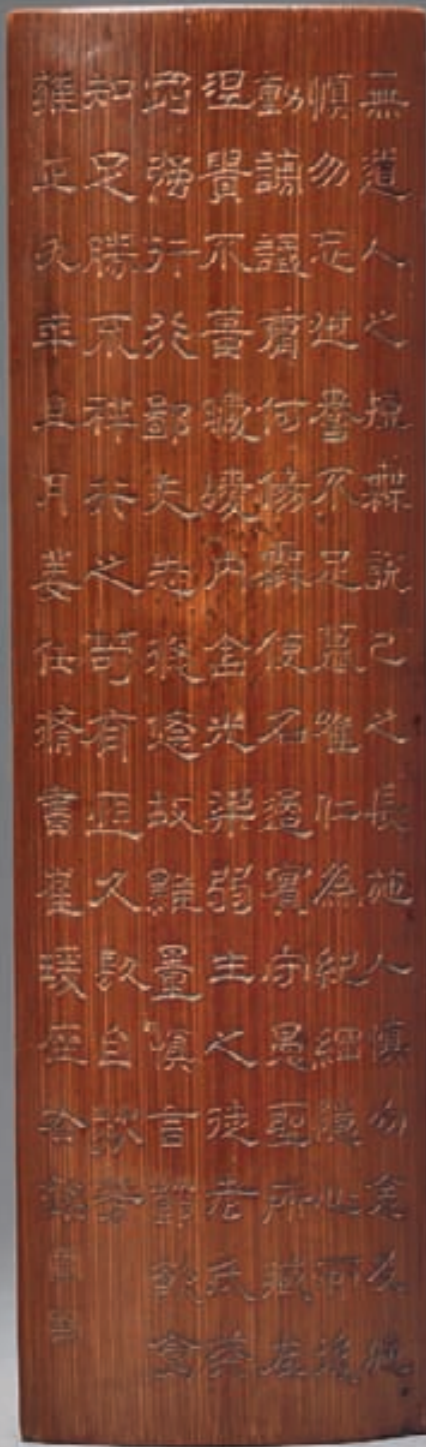 無道人之短無說己之長施人慎勿念受施
慎勿忘世譽不足慕唯仁為紀綱隱心而後
動謗議庸何傷無使名過實守愚聖所臧在
涅貴不菑曖曖內含光柔弱生之徒老氏誡
剛强行行鄙夫志悠悠故難量慎言節飲食
知足勝不祥行之苟有恆久久自芬芳
雍正九年且月姜仕脩書崔瑗座右銘